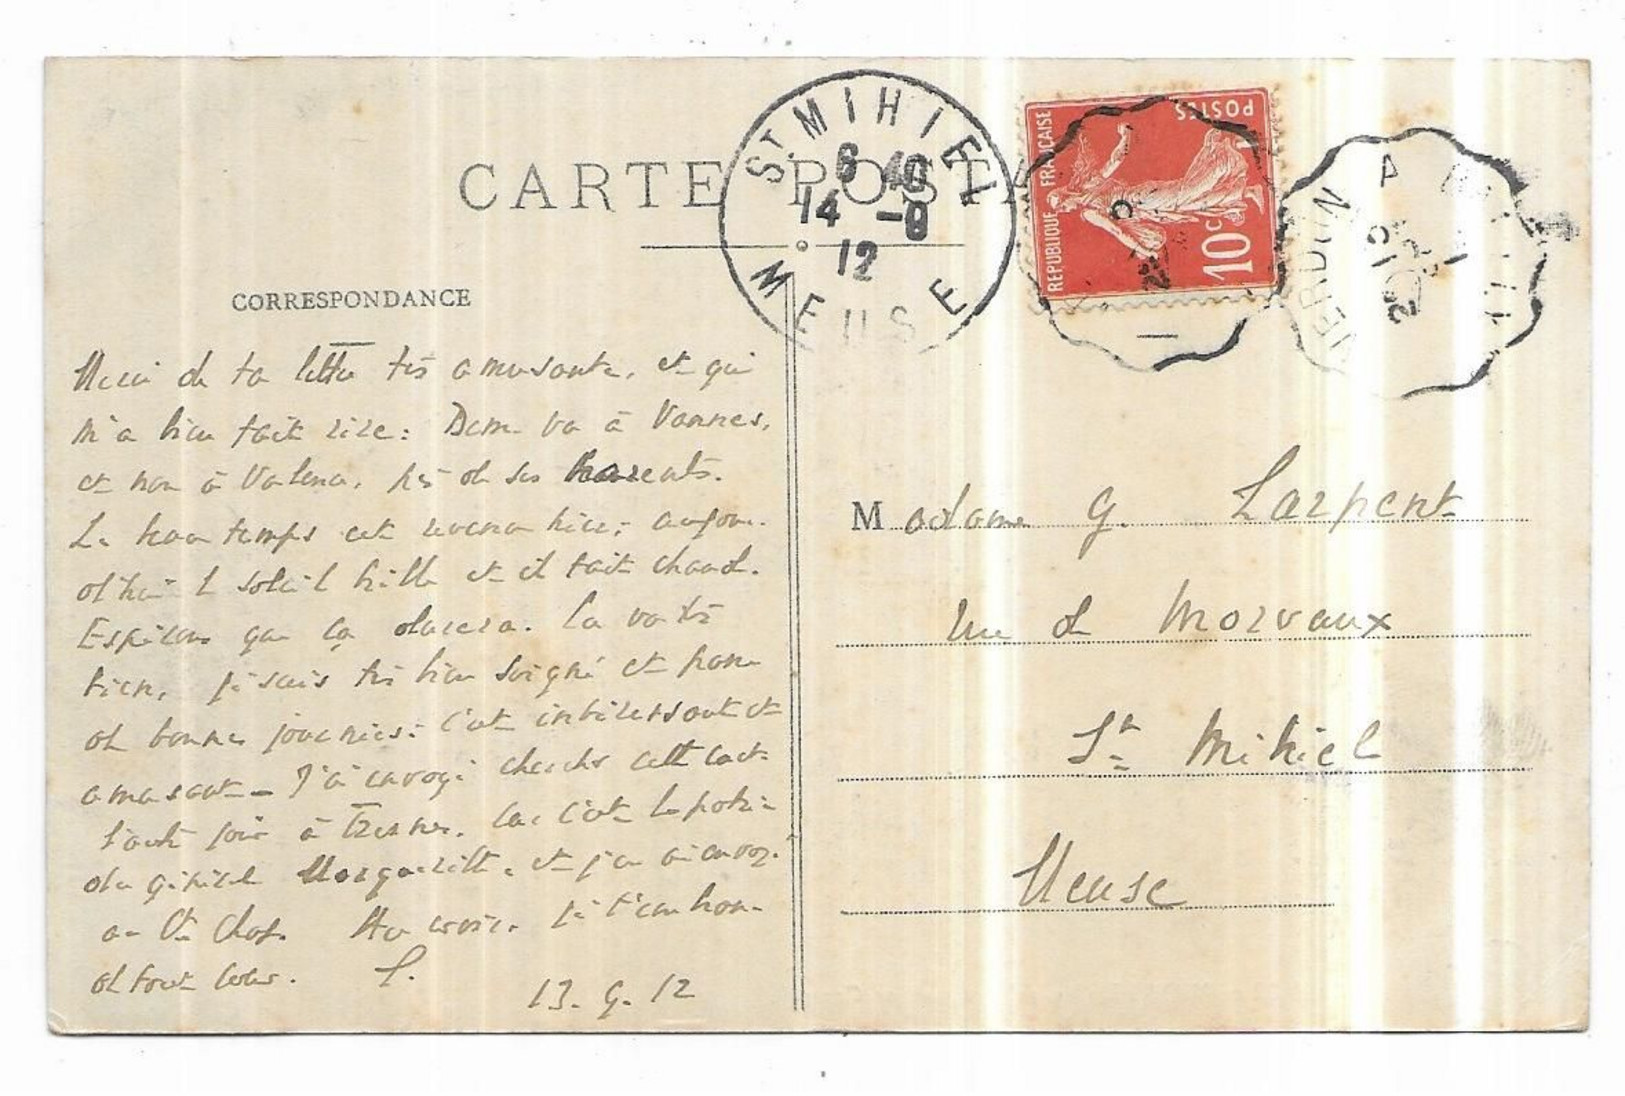 CARTE POSTA
CORRESPONDANCE
ST MIHIEL
6 40
14 -9
12
MEUSE
REPUBLIQUE FRANCAISE
POSTES
10c
VERDUN A
Merci de ta lettre très amusante, et qui
m'a bien fait rire: Dom. va à Vannes,
et non à Valence, près de ses parents.
Le beau temps est revenu hier; aujour-
d'hui le soleil brille et il fait chaud.
Espérons que ça durera. Ça va très
bien, je suis très bien soigné et
de bonnes journées: c'est intéressant et
amusant – J'ai envoyé chercher cette carte
l'autre jour à Fresnes, car c'est la patrie
du général Margueritte, et j'en ai envoyé
au Chof. Au revoir. Je t'em
de tout cœur. P.
13. 9. 12
Madame G. Larpent
rue de Morvaux
St Mihiel
Meuse